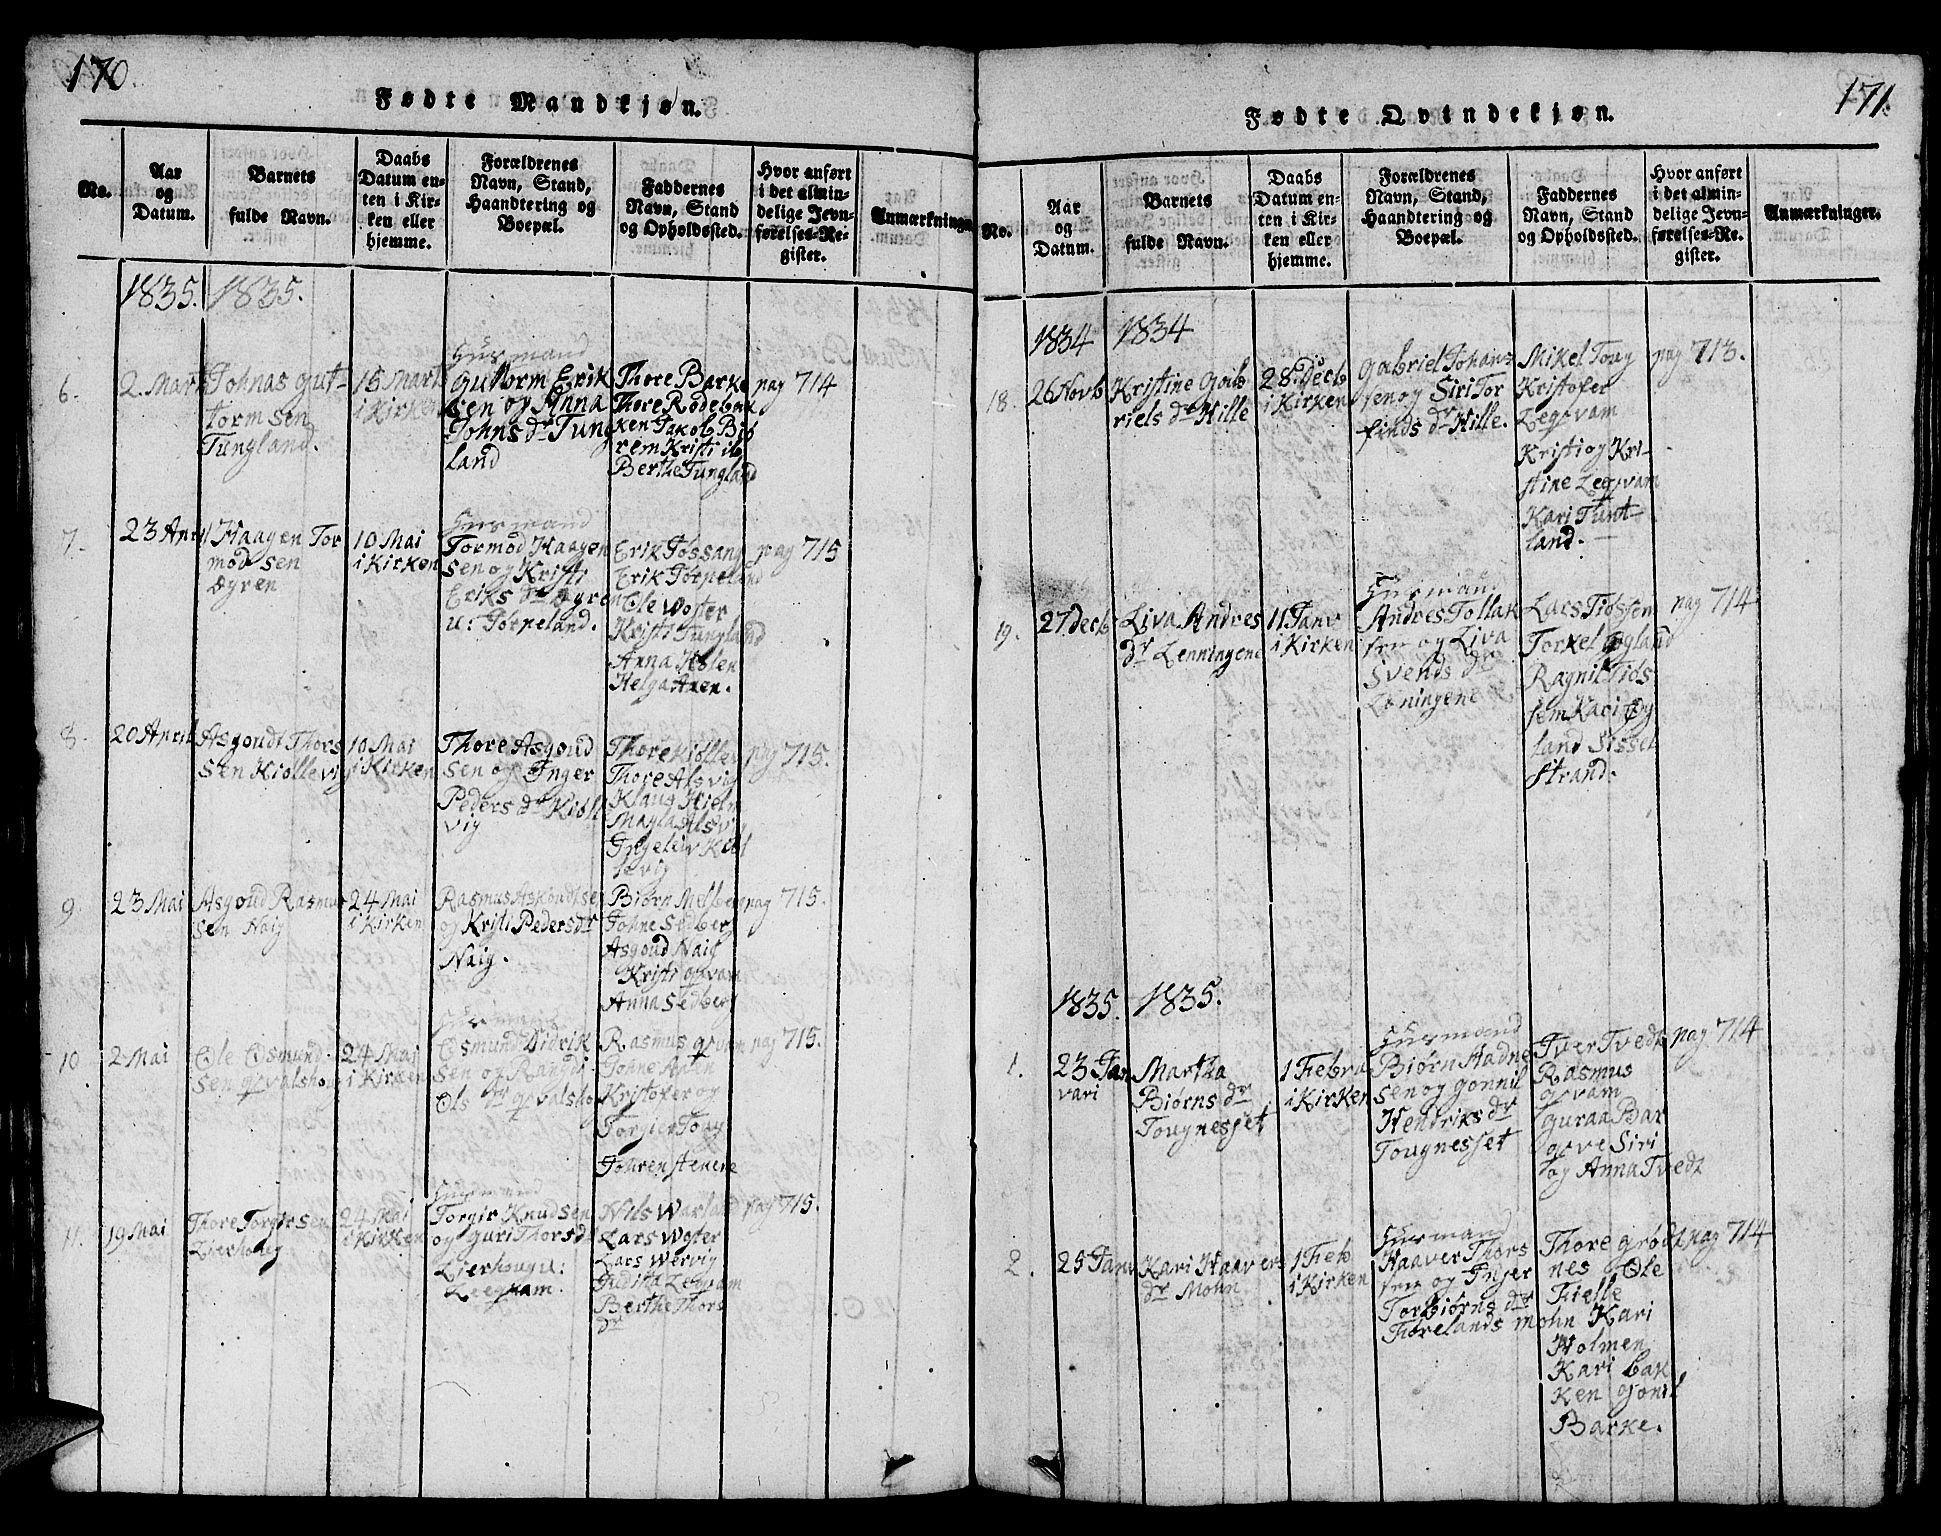 170.
Fødte Mandkjøn.
No.
Aar
og
Datum.
Barnets
fulde Navn.
Daabs
Datum en-
ten i Kir-
ken eller
hjemme.
Forældrenes
Navn, Stand,
Haandtering og
Boepæl.
Faddernes
Navn, Stand
og Opholdssted.
Hvor anført
i det almin-
delige Jevn-
førelses-Re-
gister.
Anmærkninger
1835. 1835.
6.
2. Mart
Johnas gut-
torm sen
Tungland.
15 Mart
i Kirken
Husmand
Guttorm Erik
sen og Anna
Johns dr Tung
land
Thore Barke
Thore Rødebak
ken Jakob
rem Kristi ib
Berthe Tungland
pag 714
7.
23 April
Haagen Tor
mod sen
Øgren
10 Mai
i Kirken
Husmand
Tormod Haagen
sen og Kristi
Eriks dr Øgren
u: Tørpeland.
Erik Tøssang
Erik Tørpeland
Ole Woster
Kristi Tungland
Anna Hølen
Helga Anen.
pag 715
8.
20 April
Asgoudt Thors
sen Kiøllevig
10 Mai
i Kirken
Thore Asgoud
sen og Inger
Peders dr Kiøll
vig
Thore Kiøllev
Thore Alsvig
Klaus Hieln
Magla Alsv
Ingeleiv Kiøl
levig
pag 715.
9.
23 Mai
Asgoud Rasmus
sen Naig
24 Mai
i Kirken
Rasmus Askoudtsen
og Kristi Pedersdr
Naig.
Biørn Melberg
Johne Sedberg
Asgoud Naig
Kristi qvam
Anna Sedberg
pag 715.
10.
2 Mai
Ole Osmund
sen qvalshoug
24 Mai
i Kirken
Husmand
Osmund Didrik
sen og Randi
Ols dr qvalshou
Rasmus qvam
Johne Anen
Kristofer og
Torgier Toug
Johren stenere
pag 715.
11.
19 Mai
Thore Torgirsen
Lierhoug
24 Mai
i Kirken
Husmand
Torgir Knudsen
og Guri Thorsdr
Lierhoug u:
Legvam.
Nils Warland
Lars Woster
Lars Wervig
Judita Legvam
Berthe Thors
dr
pag 715.
171.
Fødte Qvindekjøn.
No.
Aar
og
Datum.
Barnets
fulde Navn.
Daabs
Datum en-
ten i Kir-
ken eller
hjemme.
Forældrenes
Navn, Stand,
Haandtering og
Boepæl.
Faddernes
Navn, Stand
og Opholdssted.
Hvor anført
i det almin-
delige Jevn-
førelses-Re-
gister.
Anmærkninger.
1834 1834
18.
26 Novb
Kristine Gab
riels dr Hille
28. Decb
i Kirken
Gabriel Johans
sen og Siri Tor
finds dr Hille.
Mikel Toug
Kristofer
Legvam
Kristi og Kri-
stine Legvam
Kari Tunt-
land.
pag 713.
19.
27 Decb
Liva Andres
dr Lenningene
11 Janv
i Kirken
Husmand
Andres Tollak
sen og Liva
Svends dr
Løningene
Lars Tiøssen
Torkel Øgland
Ragnil Tiøs
sem Kari Øg
land Sissel
strand.
pag 714
1835. 1835.
1.
23 Jan
vari
Martha
Biørns dr
Tougnesset
1 Febru
i Kirken
Husmand
Biørn Aadne
sen og gonnil
Hendriks dr
Tougnesset
Iver Tvedt
Rasmus
qvam
Guraa Bar
gove Siri
og Anna Tvedt
pag 714
2.
25 Janv
Kari Haavers
dr Mohn.
1 Feb
i Kirken
Husmand
Haaver Thors
sen og Inger
Torbiørns dr
Fiørelands mohn
Thore grødt
nes Ole
Fielle
Kari
Holmen
Kari bak
ken gonil
Barke.
pag 714